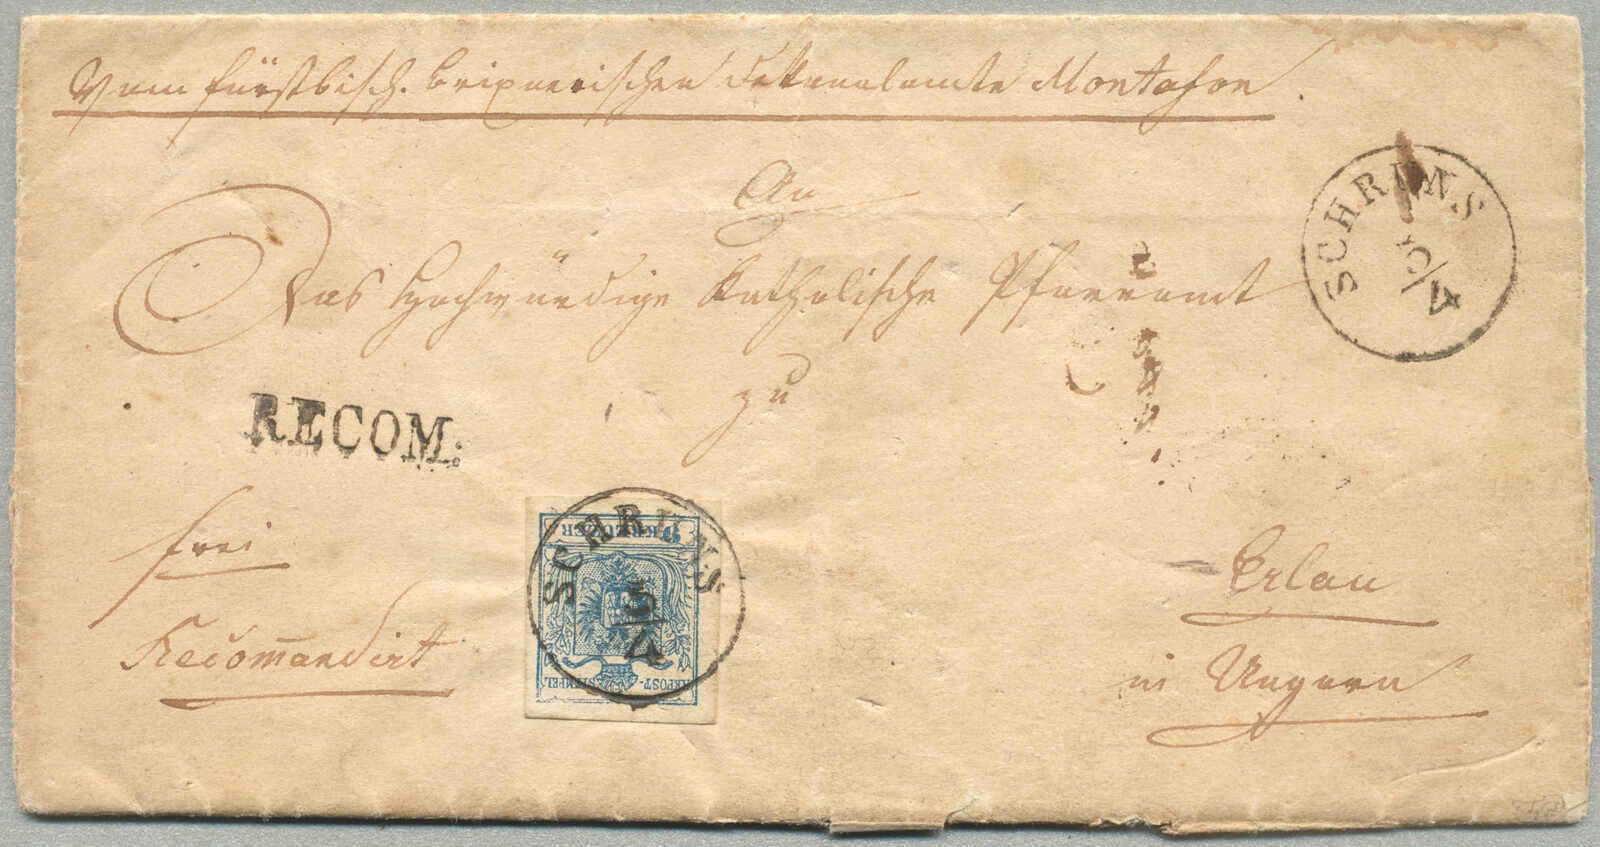 Vom fürstbisch. brixnerischen Dekanalamte Montafon.
An
Das Hochwürdige katholische Pfarramt
zu
SCHRUNS
5/4
RECOM:
frei
Recommandirt
9 KREUZER
SCHRUNS
5/4
KKPOST-STEMPEL
Erlau
in Ungarn